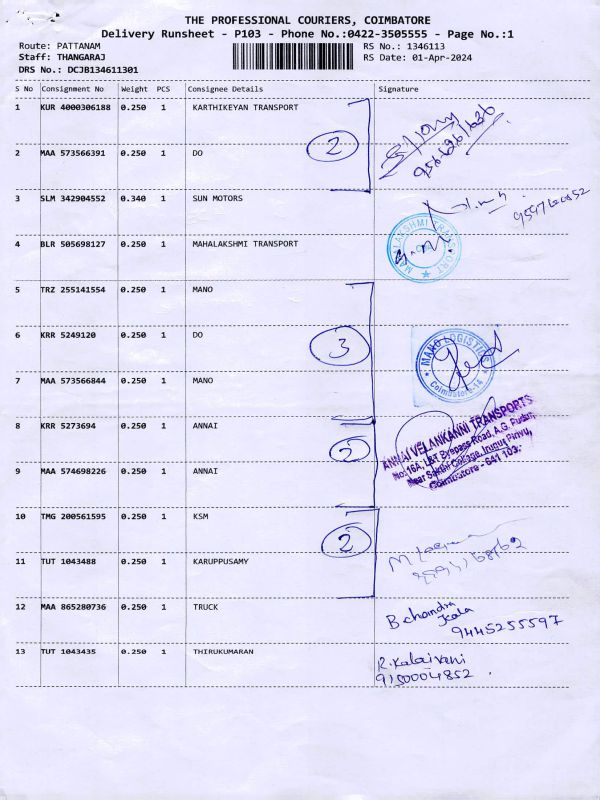 THE PROFESSIONAL COURIERS, COIMBATORE
Delivery Runsheet - P103 - Phone No.:0422-3505555 - Page No.:1
Route: PATTANAM RS No.: 1346113
Staff: THANGARAJ RS Date: 01-Apr-2024
DRS No.: DCJB134611301
S No Consignment No Weight PCS Consignee Details Signature
1 KUR 4000306188 0.250 1 KARTHIKEYAN TRANSPORT
2
2 MAA 573566391 0.250 1 DO
3 SLM 342904552 0.340 1 SUN MOTORS
4 BLR 505698127 0.250 1 MAHALAKSHMI TRANSPORT
MAHALAKSHMI TRANSPORT
5 TRZ 255141554 0.250 1 MANO
6 KRR 5249120 0.250 1 DO
3
MANO LOGISTICS
Coimbatore-14
7 MAA 573566844 0.250 1 MANO
8 KRR 5273694 0.250 1 ANNAI
2
ANNAI VELANKANNI TRANSPORTS
No: 16A, L&T Bypass Road, A.G. Pudur,
Near Sakthi College, Irugur Pirivu,
Coimbatore - 641 103.
9 MAA 574698226 0.250 1 ANNAI
10 TMG 200561595 0.250 1 KSM
2
11 TUT 1043488 0.250 1 KARUPPUSAMY
12 MAA 865280736 0.250 1 TRUCK
B chandra
kala
9445255597
13 TUT 1043435 0.250 1 THIRUKUMARAN
R. Kalaivani
9150004852